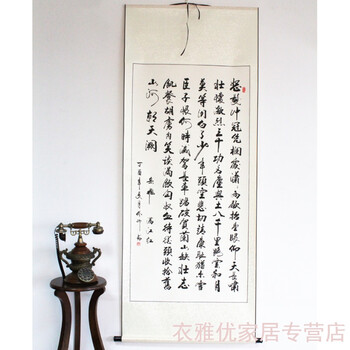 怒髮冲冠凭栏處瀟瀟雨歇抬望眼仰天長嘯
壯懷激烈三十功名塵與土八千里路雲和月
莫等閒白了少年頭空悲切靖康恥猶未雪
臣子恨何時滅駕長車踏破賀蘭山缺壯志
飢餐胡虜肉笑談渴飲匈奴血待從頭收拾舊
山河朝天闕
岳飛 滿江紅
丁酉年
衣雅优家居专营店